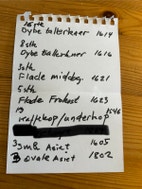 16stk
Dybe tallerkner 1614
8stk
Dybe tallerkner 1616
3stk
Flade middag. 1621
5stk
Flade Frokost 1623
19 1546
Kaffekop/underkop
3 små Asiet 1605
3 ovale Asiet 1802